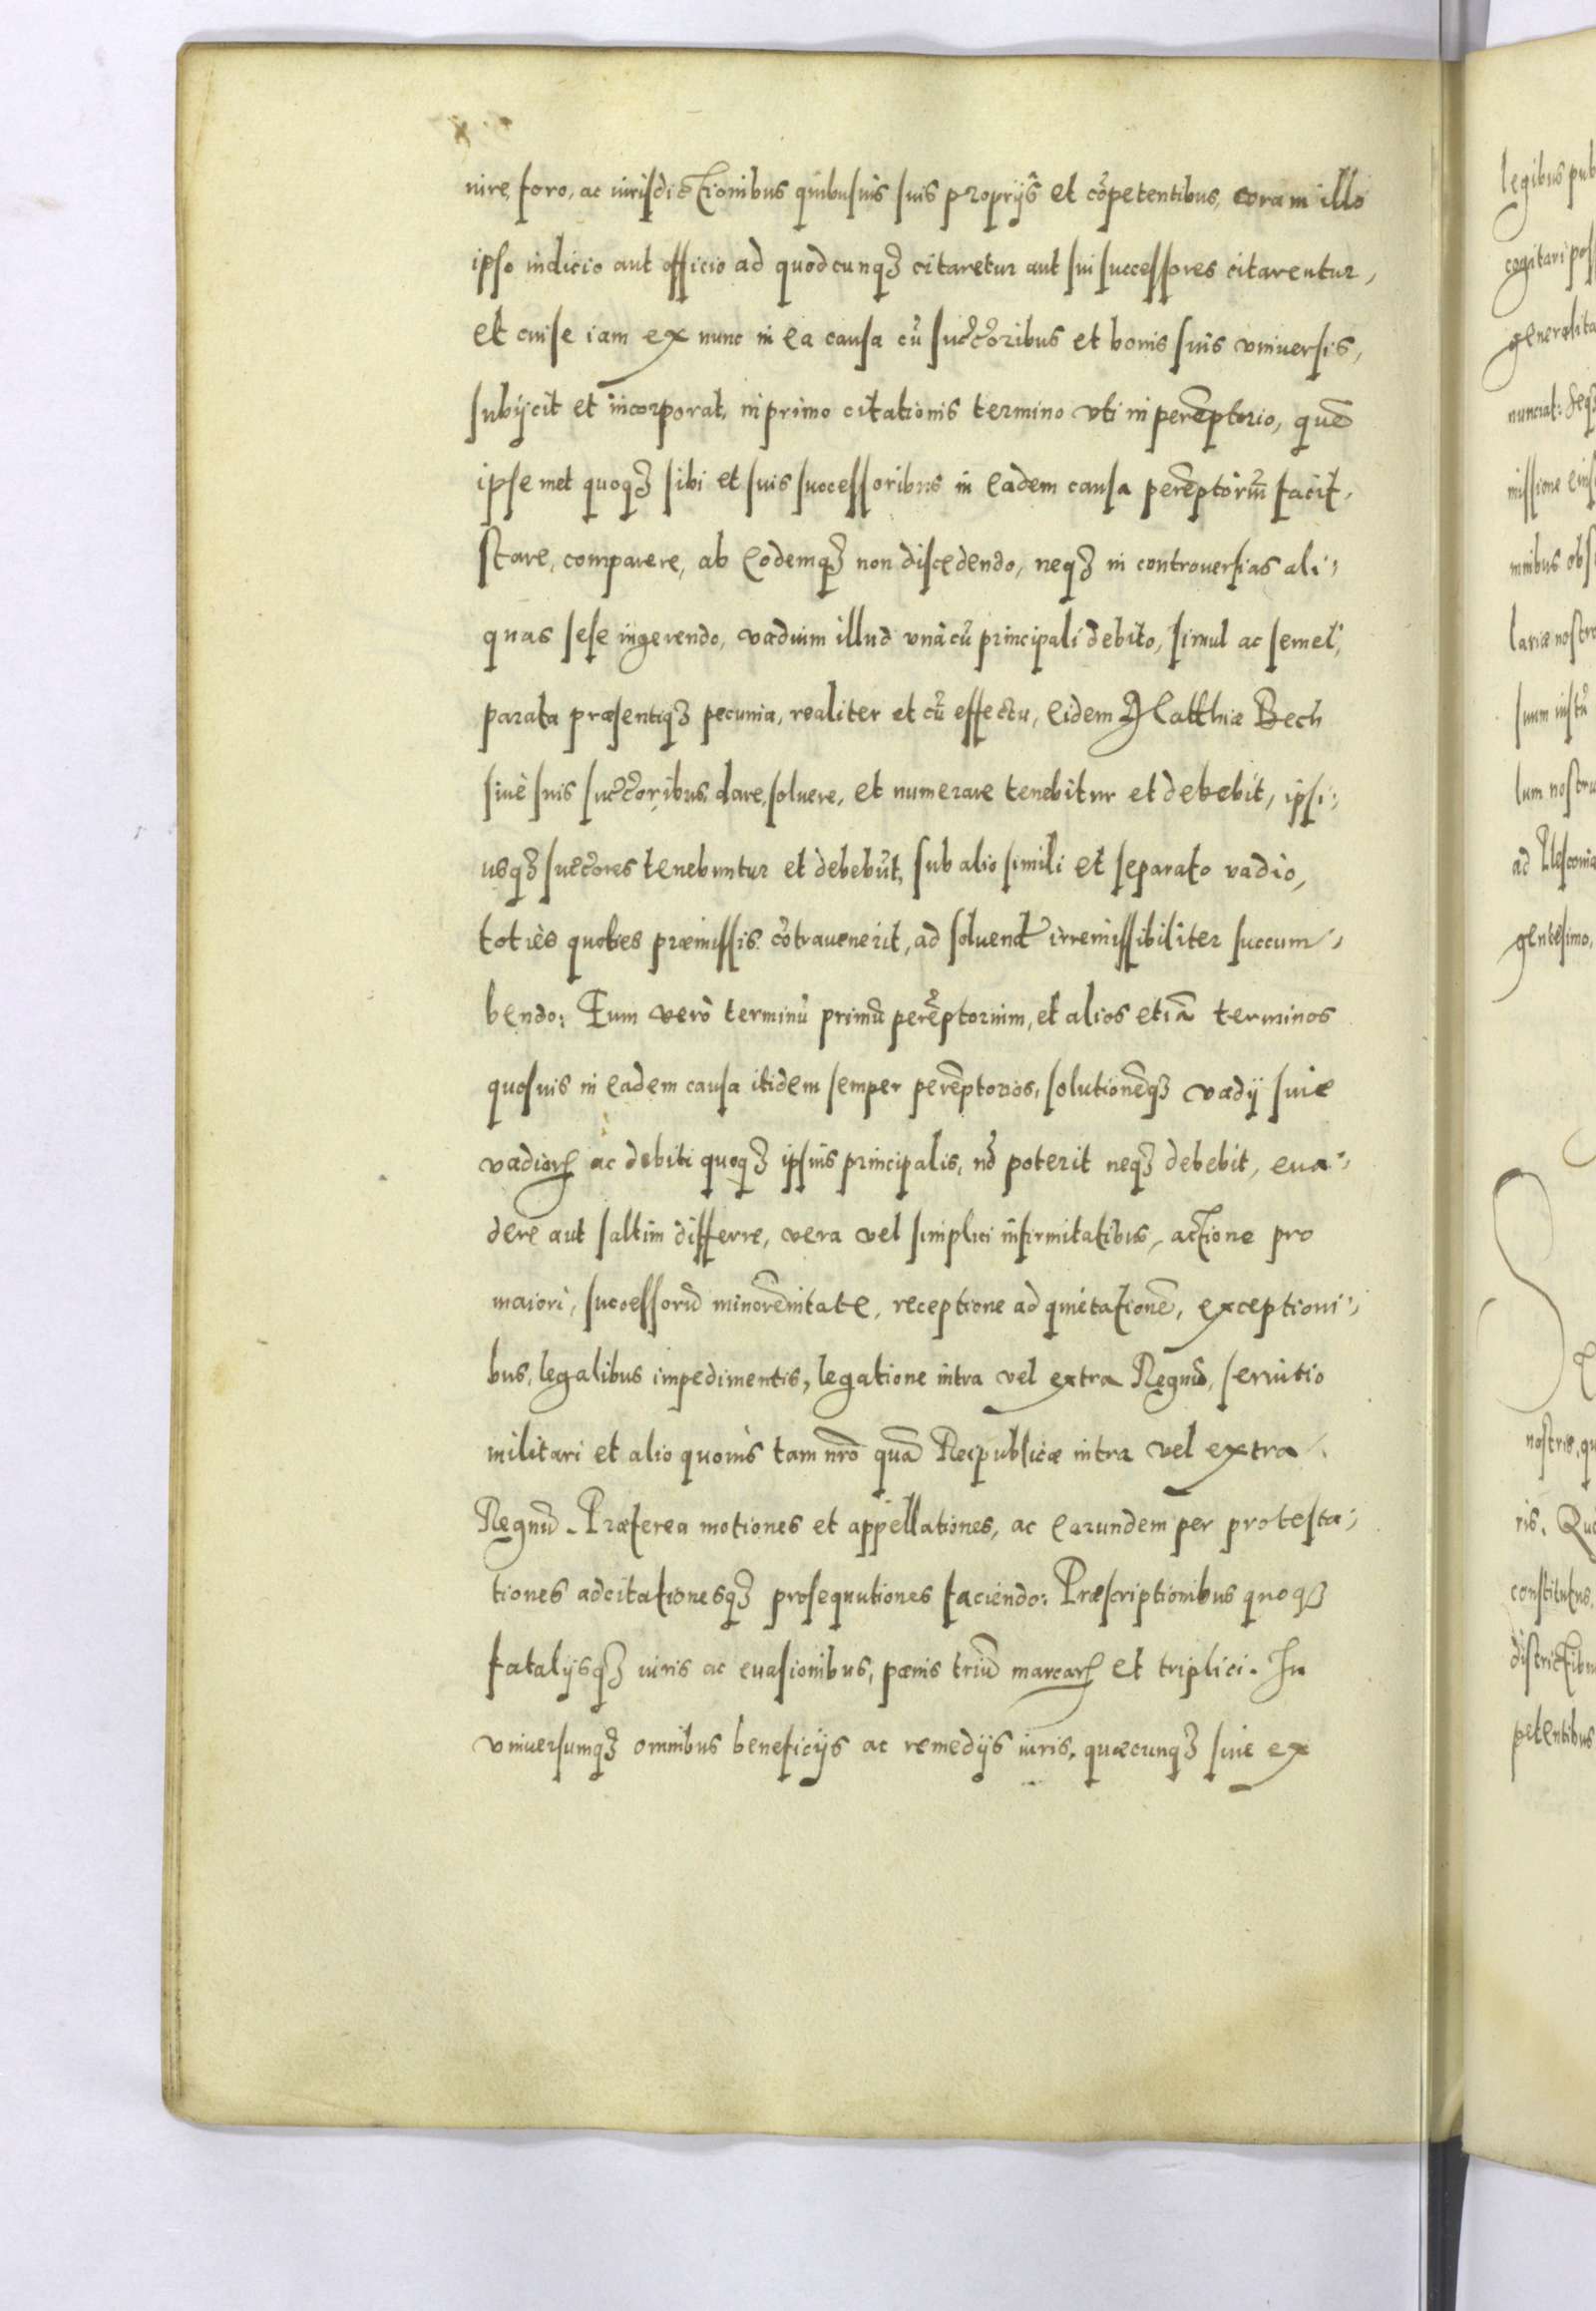 iure, foro, ac iurisdictionibus quibusuis suis proprijs et cōpetentibus, coram illo
ipso iudicio aut officio ad quodcunqꝫ citaretur aut sui successores citarentur,
et cui se iam ex nunc in ea causa cū succ̃oribus et bonis suis vniuersis,
subijcit et incorporat, in primo citationis termino vti in perēptorio, quē
ipse met quoqꝫ sibi et suis successoribus in eadem causa perēptoriū facit,
stare, comparere, ab eodemqꝫ non discedendo, neqꝫ in controuersias ali-
quas sese ingerendo, vadium illud vnà cū principali debito, simul ac semel,
parata præsentiqꝫ pecunia, realiter et cū effectu, eidem Matthiæ Bech
siuè suis succ̃oribus, dare, soluere, et numerare tenebitur et debebit, ipsi-
usqꝫ succ̃ores tenebuntur et debebūt, sub alio simili et separato vadio,
totiès quoties præmissis cōtrauenerit, ad soluend irremissibiliter succum-
bendo: Eum verò terminū primū perēptorium, et alios etiā terminos
quosuis in eadem causa itidem semper perēptorios, solutionēqꝫ vadij siue
vadiorꝝ ac debiti quoqꝫ ipsius principalis, nō poterit neqꝫ debebit, eua-
dere aut saltim differre, vera vel simplici infirmitatibus, actione pro
maiori, successorū minorēnitate, receptione ad quietationē, exceptioni-
bus, legalibus impedimentis, legatione intra vel extra Regnū, seruitio
militari et alio quouis tam nr̄o quā Reipublicæ intra vel extra
Regnū. Præterea motiones et appellationes, ac earundem per protesta-
tiones adcitationesqꝫ prosequutiones faciendo: Præscriptionibus quoqꝫ
fatalijsqꝫ iuris ac euasionibus, pœnis triū marcarꝝ et triplici. In
vniuersumqꝫ omnibus beneficijs ac remedijs iuris, quæcunqꝫ siue ex
legibus pub
cogitari pos
generalita
nunciat: Seqꝫ
missione eius
mnibus obs
lariæ nostr
suum iustū
lum nostru
ad
gentesimo,
nostris, qu
ris. Quo
constitutus,
districtibu
petentibus